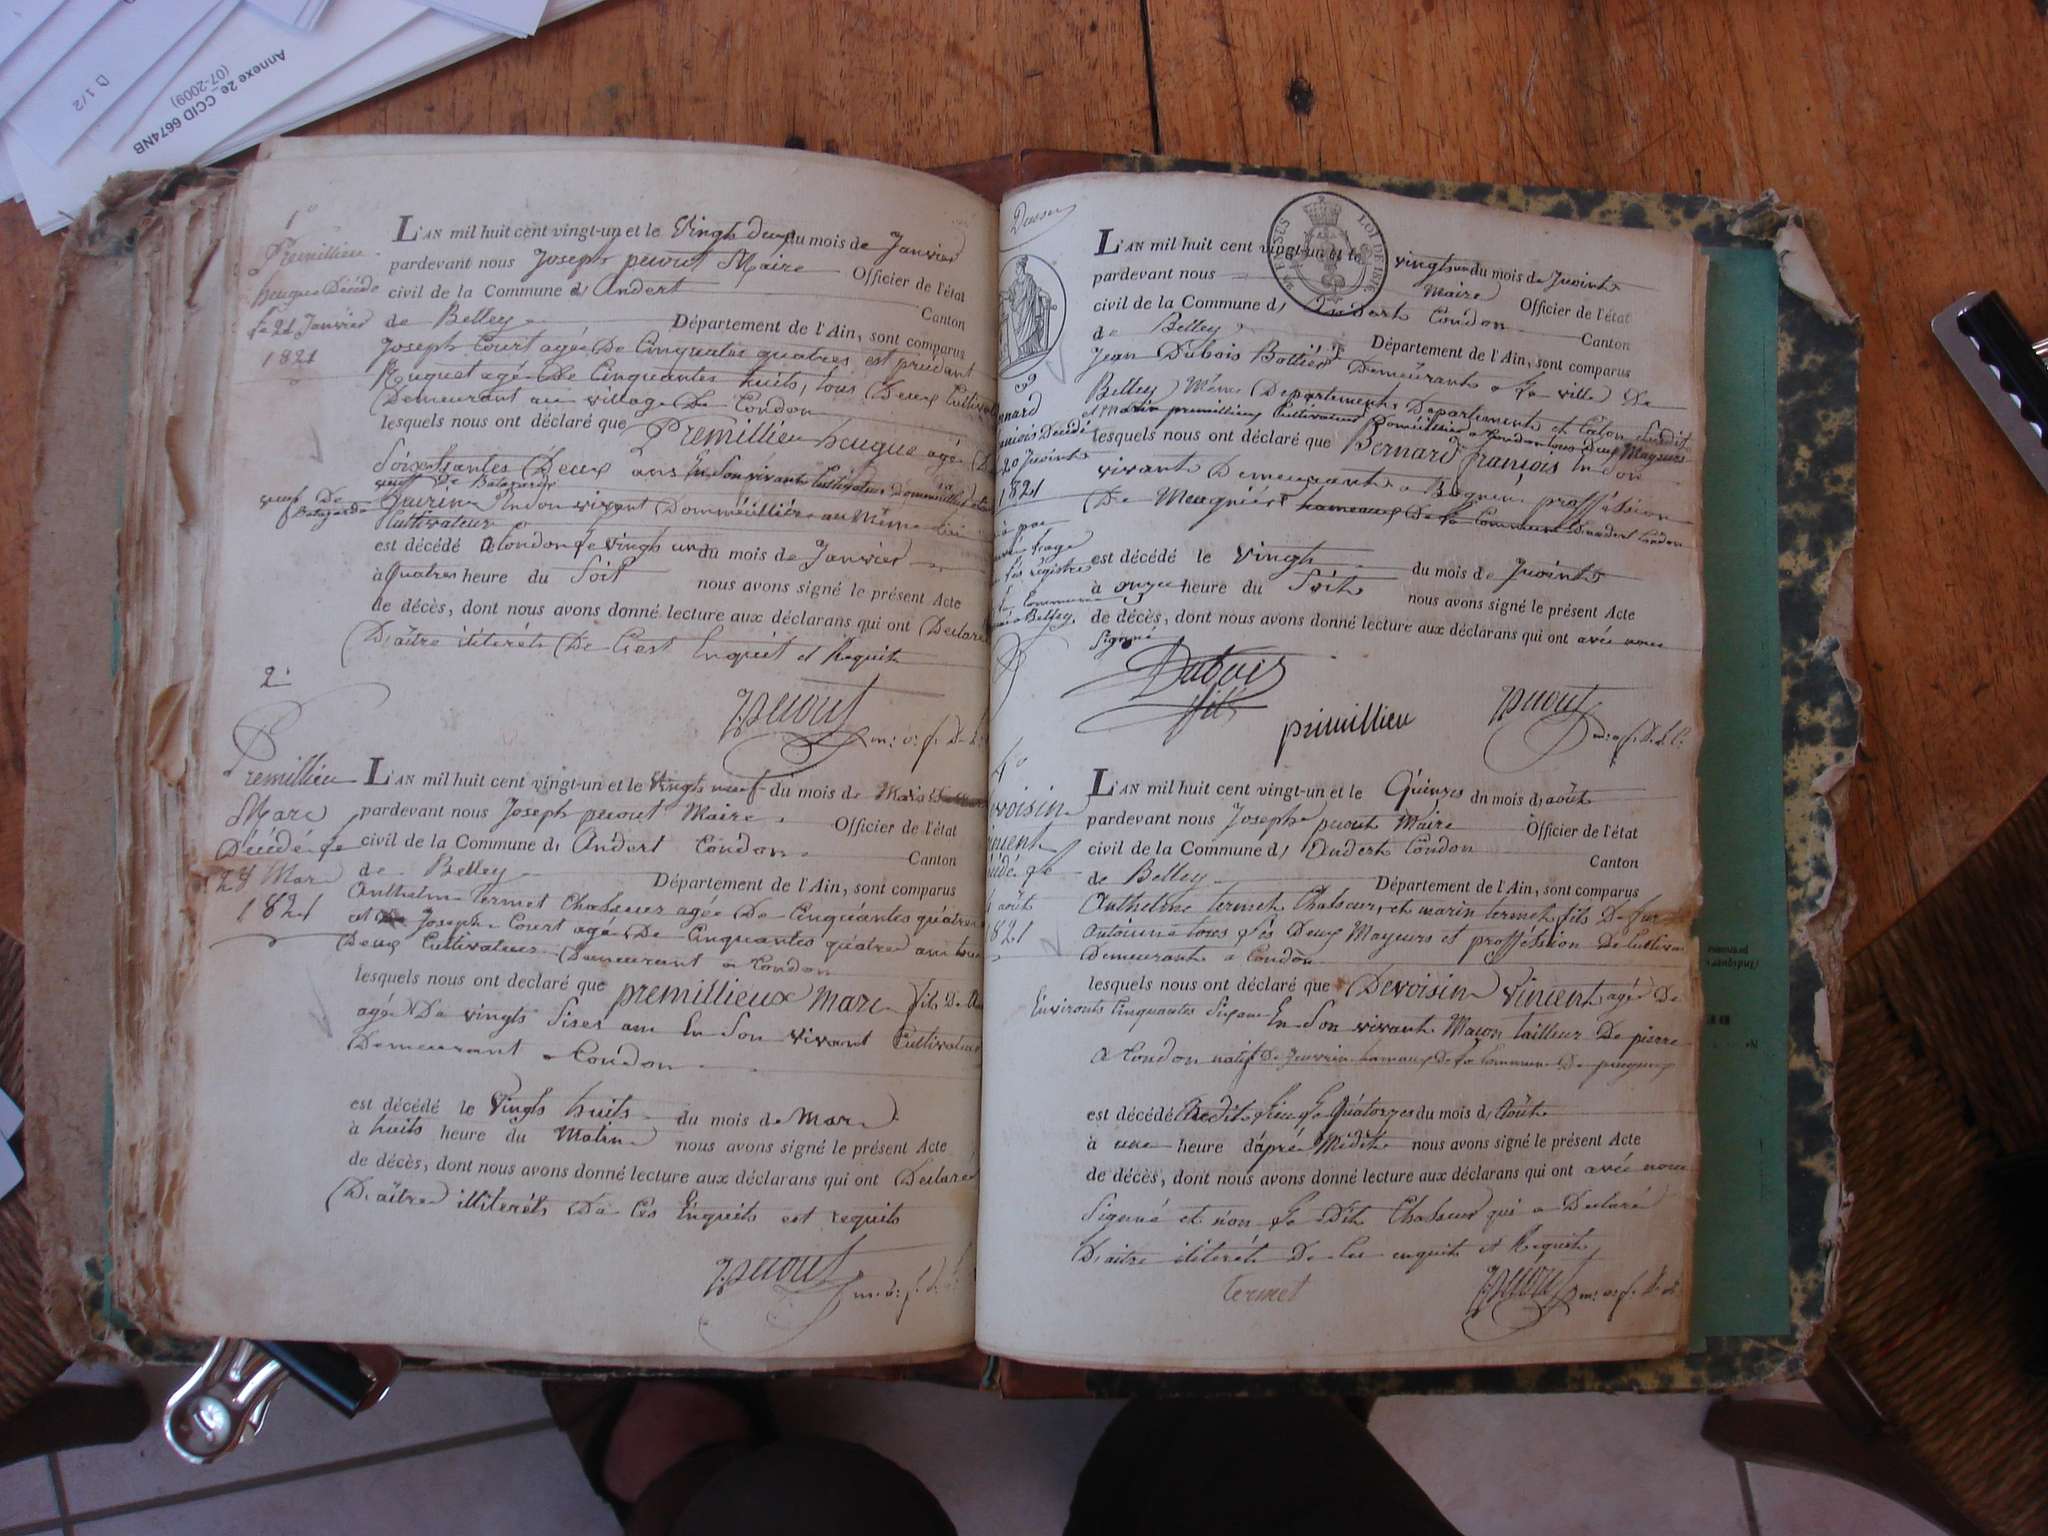 Annexe 2e CCID 6674NB
(07-2009)
D 1/2
1°
Premillieu
hugue Décédé
le 21 Janvier
1821
L'AN mil huit cent vingt-un et le Vingt deux du mois de Janvier
pardevant nous Joseph peuout Maire Officier de l'état
civil de la Commune d, Andert Canton
de Belley Département de l'Ain, sont comparus
Joseph Court agée De Cinquates quatres est prudant
Huguet agé De Cinquantes huits, tous Deux Cultivat
Demeurant au village De Condon
lesquels nous ont déclaré que Premillieu hugue agé De
Soixantes Deux ans En Son vivant Cultivateur
veuf De Batazarde
Guérin Endon vivant Dommeuillier au Même lieu
Cultivateur
est décédé a Condon le vingt un du mois de Janvier
à Quatres heure du Soit nous avons signé le présent Acte
de décès, dont nous avons donné lecture aux déclarans qui ont Declaré
D'aître iliterét De Ciest Enquit et Requit
J. peuout
m: o: f. D. L:
2.
Premillieu
Marc
Décédé le
28 Mar
1821
L'AN mil huit cent vingt-un et le Vingts neuf du mois de Mars
pardevant nous Joseph peuout Maire Officier de l'état
civil de la Commune d, Andert Condon Canton
de Belley Département de l'Ain, sont comparus
Anthelm termet Chasseur agée De Cinquantes quatres
et Joseph Court agé De Cinquantes quatres ans tous
Deux Cultivateur Demeurant a Condon
lesquels nous ont déclaré que premillieux Marc fils De
agé De vingts Sixes ans En Son vivant Cultivateur
Demeurant a Condon
est décédé le Vingts huits du mois de Mars
à huits heure du Matin nous avons signé le présent Acte
de décès, dont nous avons donné lecture aux déclarans qui ont Declaré
D'aître illiteréts De Ces Enquits est requits
J. peuout
m. o: f. D.
LOI DE 1816
L'AN mil huit cent vingt-un et le vingt un du mois de Juoint
pardevant nous Maire Officier de l'état
civil de la Commune d, Andert Condon Canton
de Belley Département de l'Ain, sont comparus
Jean Dubois Bottier Demeurant a La ville De
Belley Même Departement, Departement et Caton Sudit
et Marin premillieux Cultivateur Domeuillier a Condon tous Deux Mayeurs
lesquels nous ont déclaré que Bernard françois Endon
vivant Demeurant a Bognin proffession
De Meugnier hameaux De La Commune D'andert Condon
3
nard
Décédé
20 Juoint
1821
registre
Belley
est décédé le Vingts du mois de Juoint
à onze heure du Soit nous avons signé le présent Acte
de décès, dont nous avons donné lecture aux déclarans qui ont avée nous
Signné
Dubois
fils
primillieu
J. peuout
m: o: f. D. L:
4°
evoisin
incent
édé le
août
821
L'AN mil huit cent vingt-un et le Quinzes du mois d, août
pardevant nous Joseph peuout Maire Officier de l'état
civil de la Commune d, Andert Condon Canton
de Belley Département de l'Ain, sont comparus
Anthelme termet Chasseur, et marin termet fils De fur
Antoinne tous Les Deux Mayeurs et proffession De Cultivat
Demeurant a Condon
lesquels nous ont déclaré que Devoisin Vincent agée De
Environts Cinquantes Sixans En Son vivant Maçon tailleur De pierre
a Condon natif De hameaux De La Commune De pugieux
est décédé Audit Lieu Le Quatorzes du mois d, Août
à une heure d'aprés Midits nous avons signé le présent Acte
de décès, dont nous avons donné lecture aux déclarans qui ont avée nous
Signné et non Le Dit Chasseur qui a Declaré
D'aitre iliterét De Ces enquit et Requit
termet
J. peuout
m: o: f. D. L: